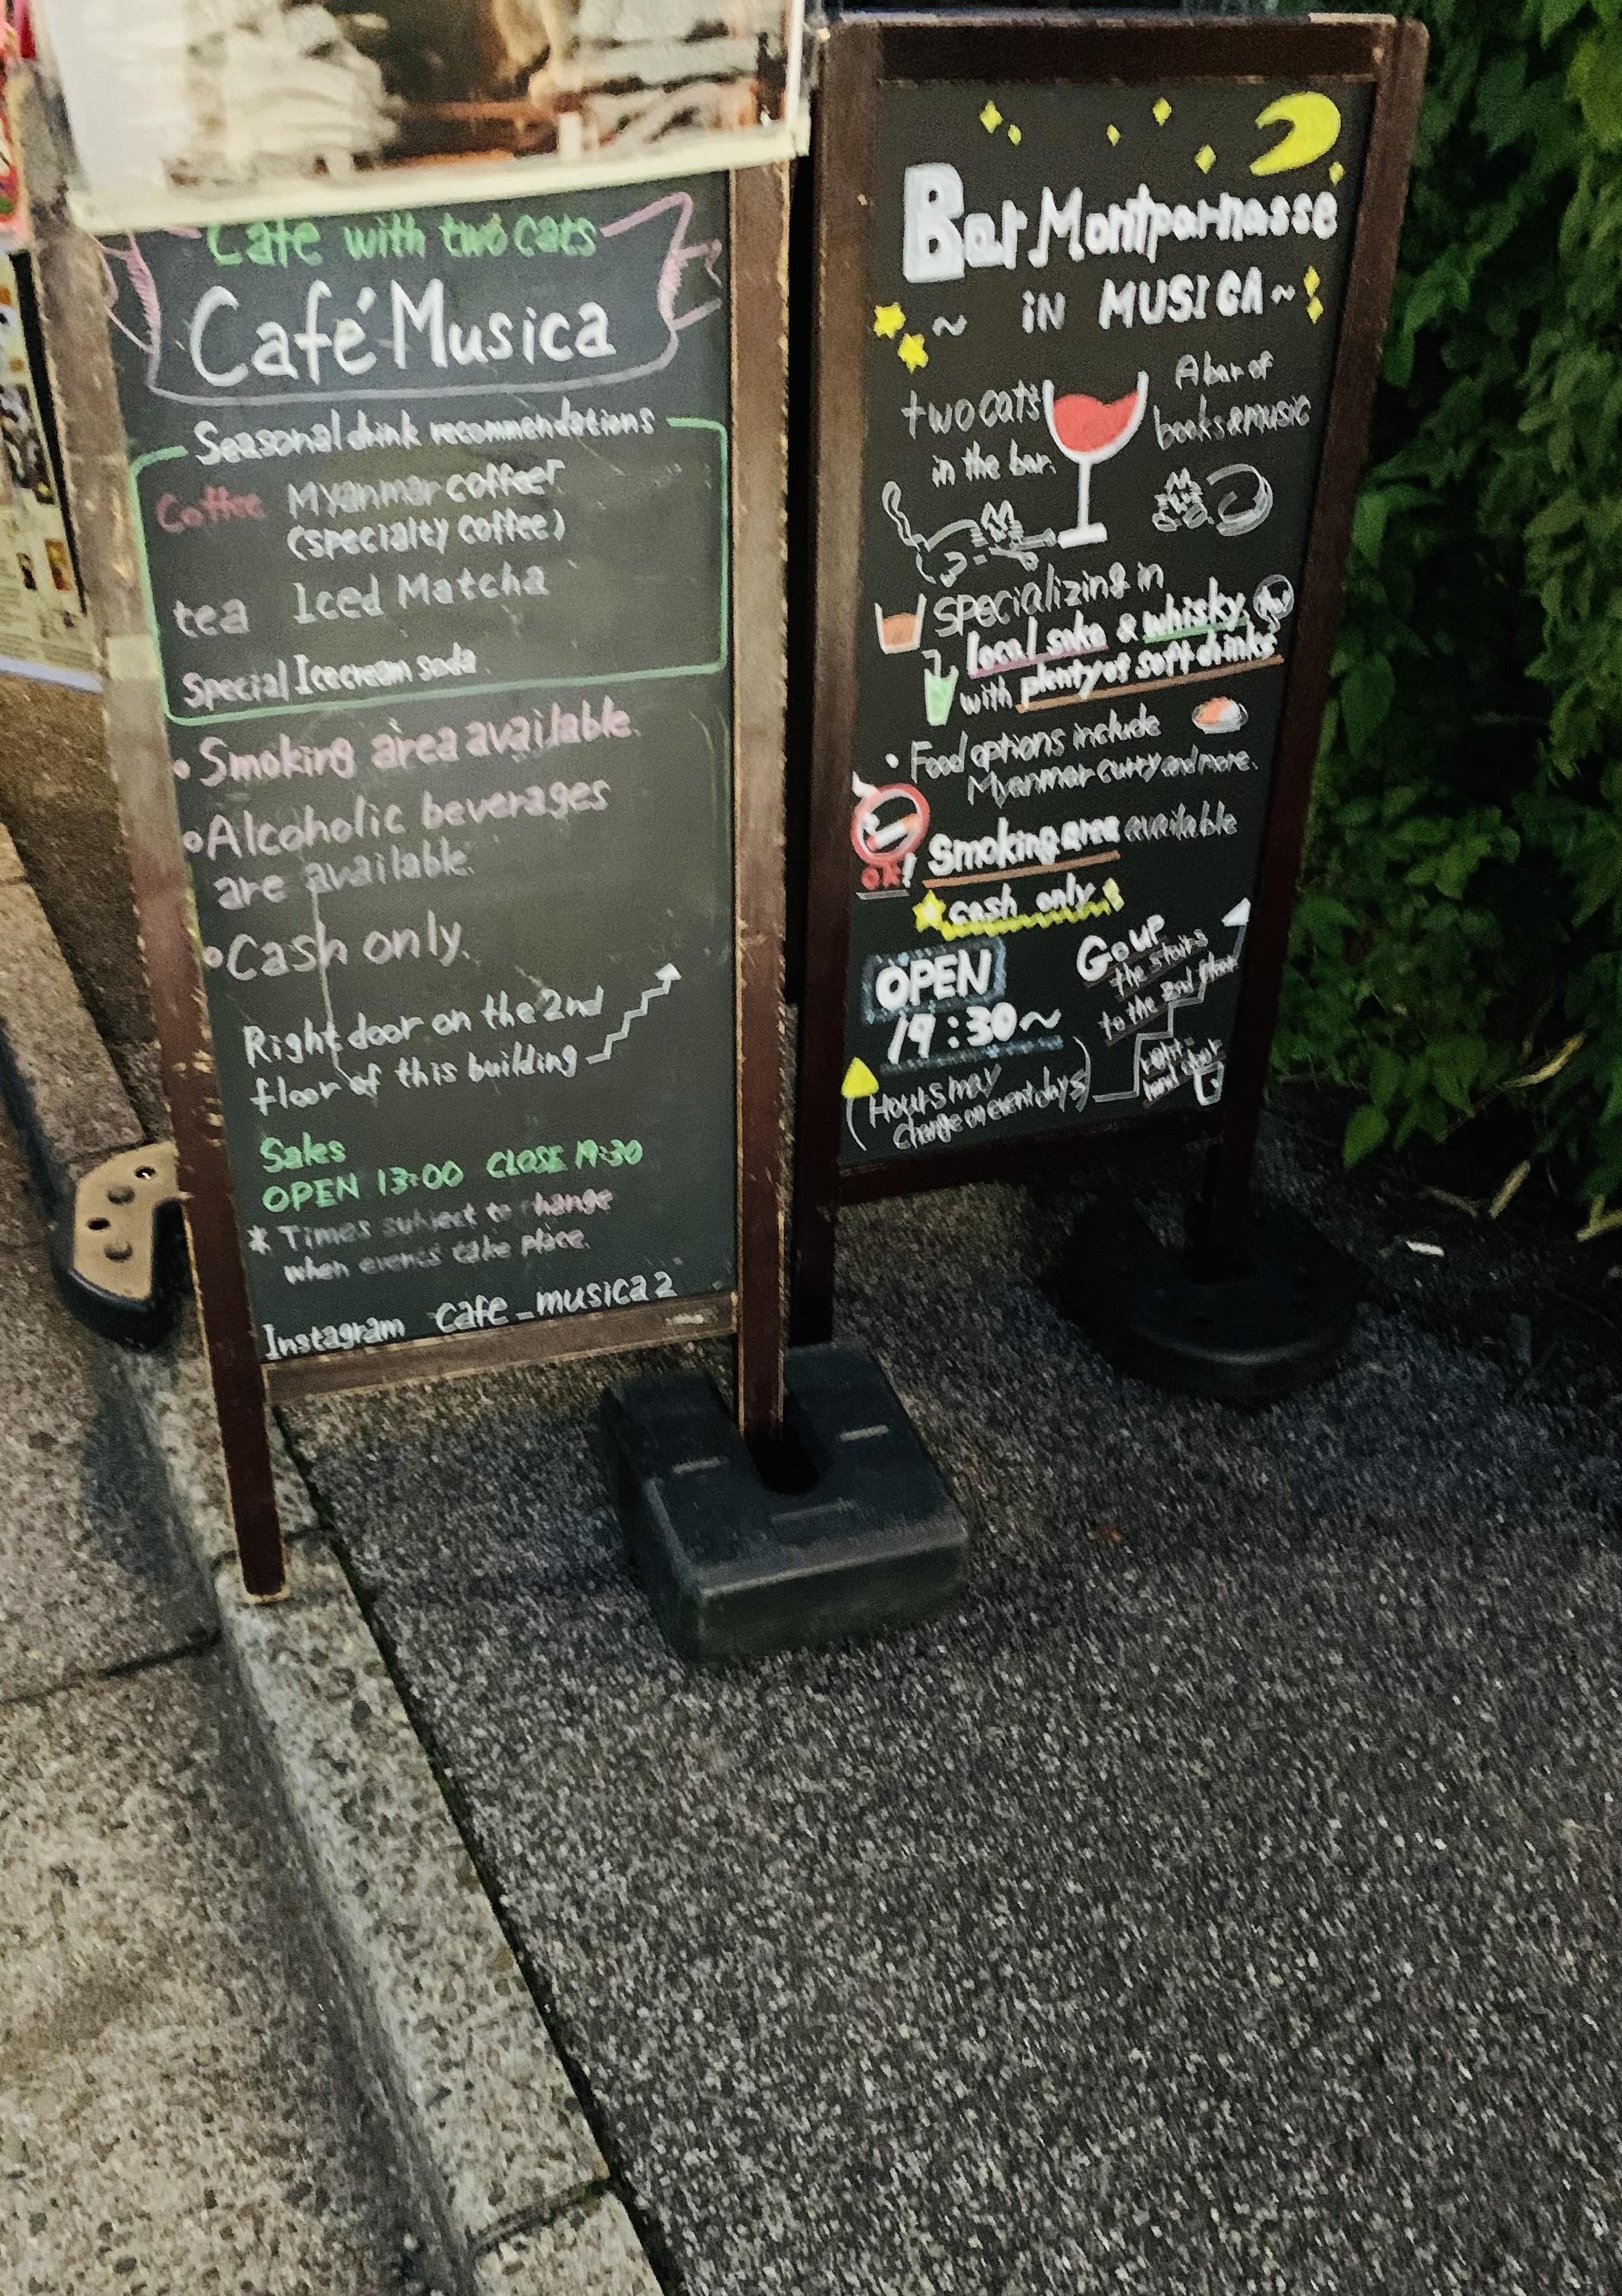 Cafe with two cats
Café Musica
Seasonal drink recommendations
Coffee Myanmar coffee
(specialty coffee)
tea Iced Matcha
Special Icecream soda
Smoking area available.
Alcoholic beverages
are available.
Cash only.
Right door on the 2nd
floor of this building
Sales
OPEN 13:00 CLOSE 19:30
* Times subject to change
when events take place.
Instagram cafe_musica2
Bar Montparnasse
~ iN MUSICA ~
two cats
in the bar.
A bar of
books & music
Specializing in
local sake & whisky,
with plenty of soft drinks
• Food options include
Myanmar curry and more.
OK!
Smoking area available
cash only
OPEN
19:30~
(Hours may
change on event days)
Go up
the stairs
to the 2nd floor
right-
hand door